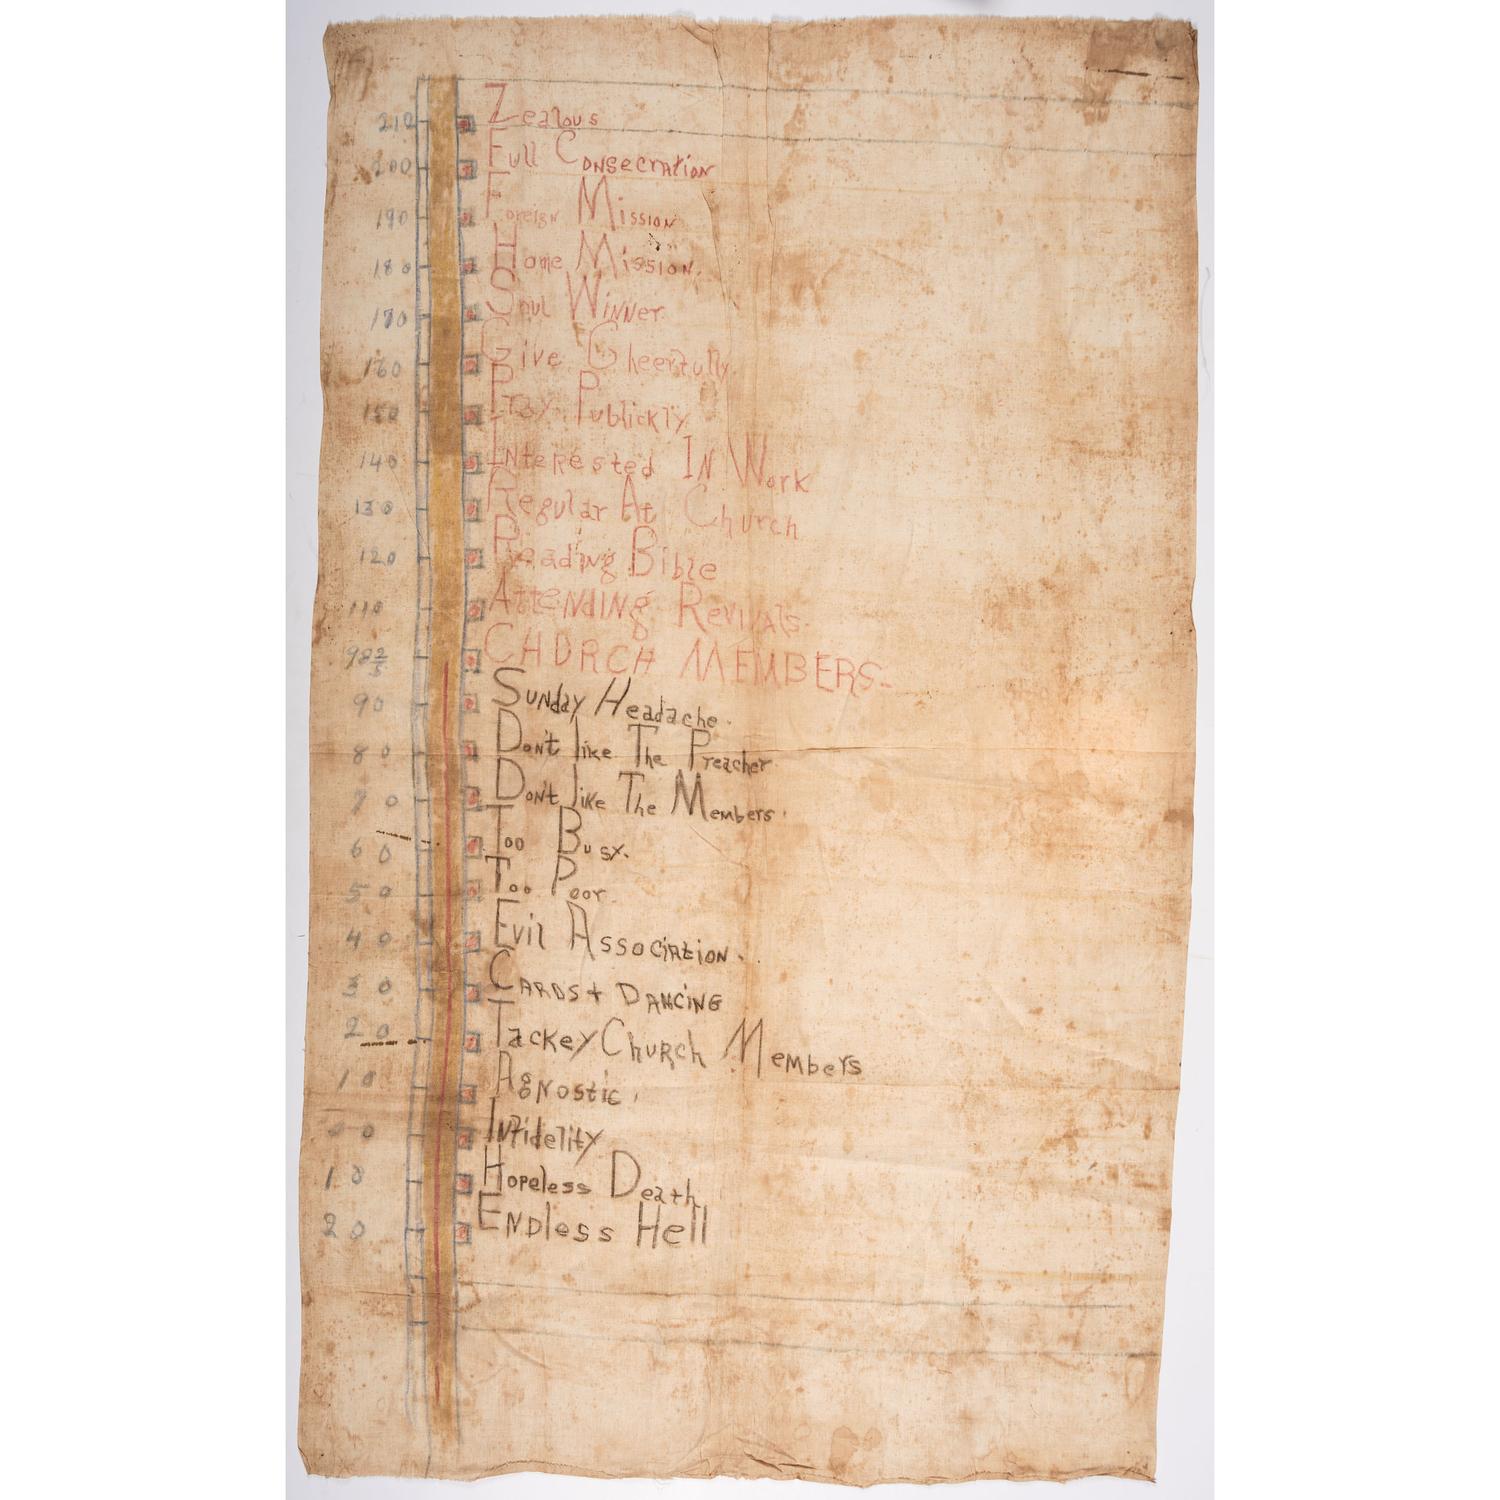 210 Zealous
200 Full Consecration
190 Foreign Mission
180 Home Mission.
170 Soul Winner
160 Give Cheerfully
150 Pray Publickly
140 Interested In Work
130 Regular At Church
120 Reading Bible
110 Attending Revivals.
98 2/5 CHURCH MEMBERS-
90 Sunday Headache.
80 Don't like The Preacher
70 Don't like The Members.
60 Too Busy.
50 Too Poor.
40 Evil Association.
30 Cards + Dancing
20 Tackey Church Members
10 Agnostic.
0 Infidelity
10 Hopeless Death
20 Endless Hell